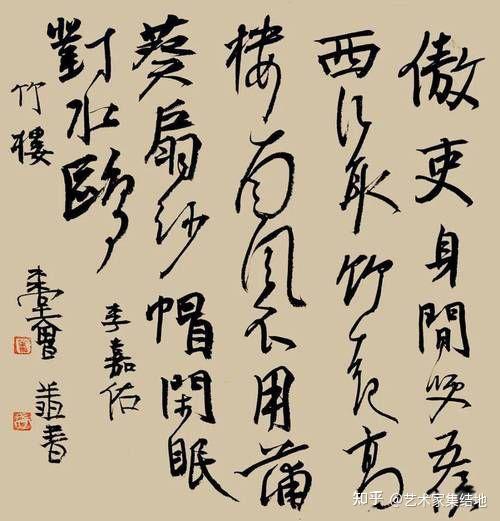 傲吏身閒笑五侯
西江取竹起高
樓南風不用蒲
葵扇紗帽閑眠
對水鷗
李嘉佑
竹樓
書
知乎 @艺术家集结地